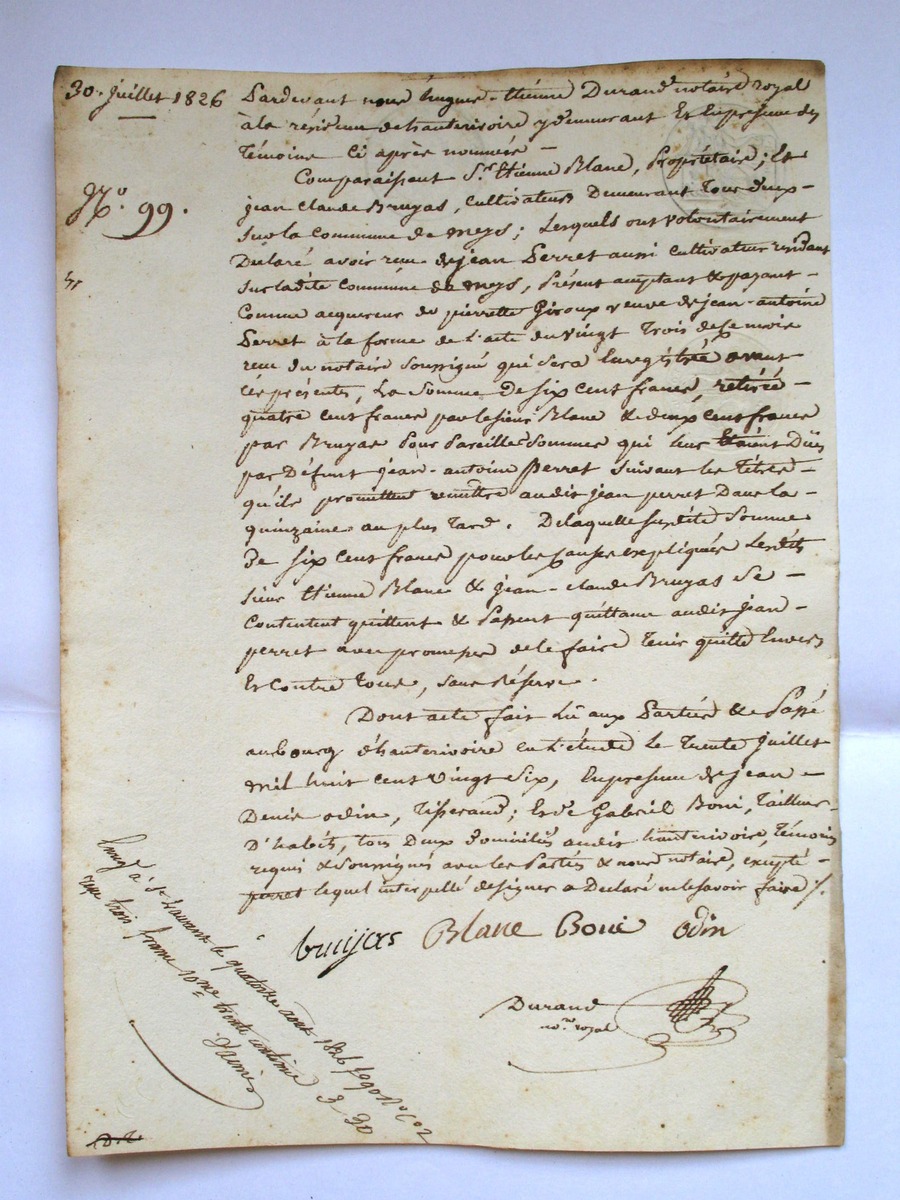 30. Juillet 1826
N.º 99.
Pardevant nous hugues-Etienne Durand notaire royal
à la résidence de hauterivoire y demeurant Et En presence des
Témoins ci après nommés -
Comparaissent S.r Etienne Blanc, Propriétaire; Et
jean Claude Bruyas, Cultivateurs Demeurant Tous deux -
sur la Commune de meys; Lesquels ont volontairement
Déclaré avoir reçu de jean Perret aussi cultivateur residant
sur ladite Commune de meys, Présent acceptant & payant -
Comme acquereur de pierrette Giroux veuve de jean-antoine
Perret à la forme de L'acte du vingt Trois de ce mois
reçu du notaire soussigné qui sera Enregistré avant
ces présentes, La Somme De six cent francs, retirée -
quatre cent francs par le sieur Blanc & deux cent francs
par Bruyas Pour Pareilles Sommes qui leur Etaient Dües
par Défunt jean-antoine Perret suivant les Titres -
qu'ils promettent remettre audit jean perret Dans la -
quinzaine au plus Tard. De laquelle susdite Somme
De six cent francs pour les causes expliquées Lesdits
sieur Etienne Blanc & jean-claude Bruyas se -
Contentent quittent & Passent quittance audit jean -
perret avec promesse de le faire Tenir quitte Envers
Et Contre Tous, sans Réserve.
Dont acte fait Lû aux Parties & Passé
au bourg d'hauterivoire en L'étude Le Trente Juillet
mil huit cent vingt six, En presence de jean -
Denis odin, Tisserand; Et de Gabriel Boni, Tailleur
D'habits, tous Deux Domiciliés audit hauterivoire, Témoins
requis & Soussignés avec les Parties & nous notaire, excepté -
perret lequel interpellé de signer a Déclaré ne le savoir faire /.
bruijas Blanc Boni odin
Durand
no.re royal
Enregé à St Laurent le quatorze août 1826 fo 90 Ro C 2
reçu trois francs 10me trente centimes
3 30